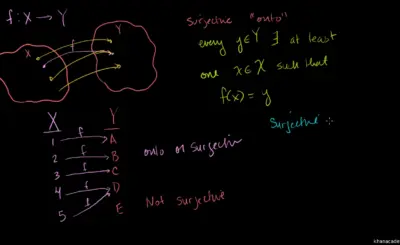 f: X → Y
Surjective "onto"
every y∈Y ∃ at least
one x∈X such that
f(x) = y
X Y f
Surjective :
X Y
1 f A
2 f B
3 f C
4 f D
5 f E
onto or surjectiv
Not surjective
khanacade